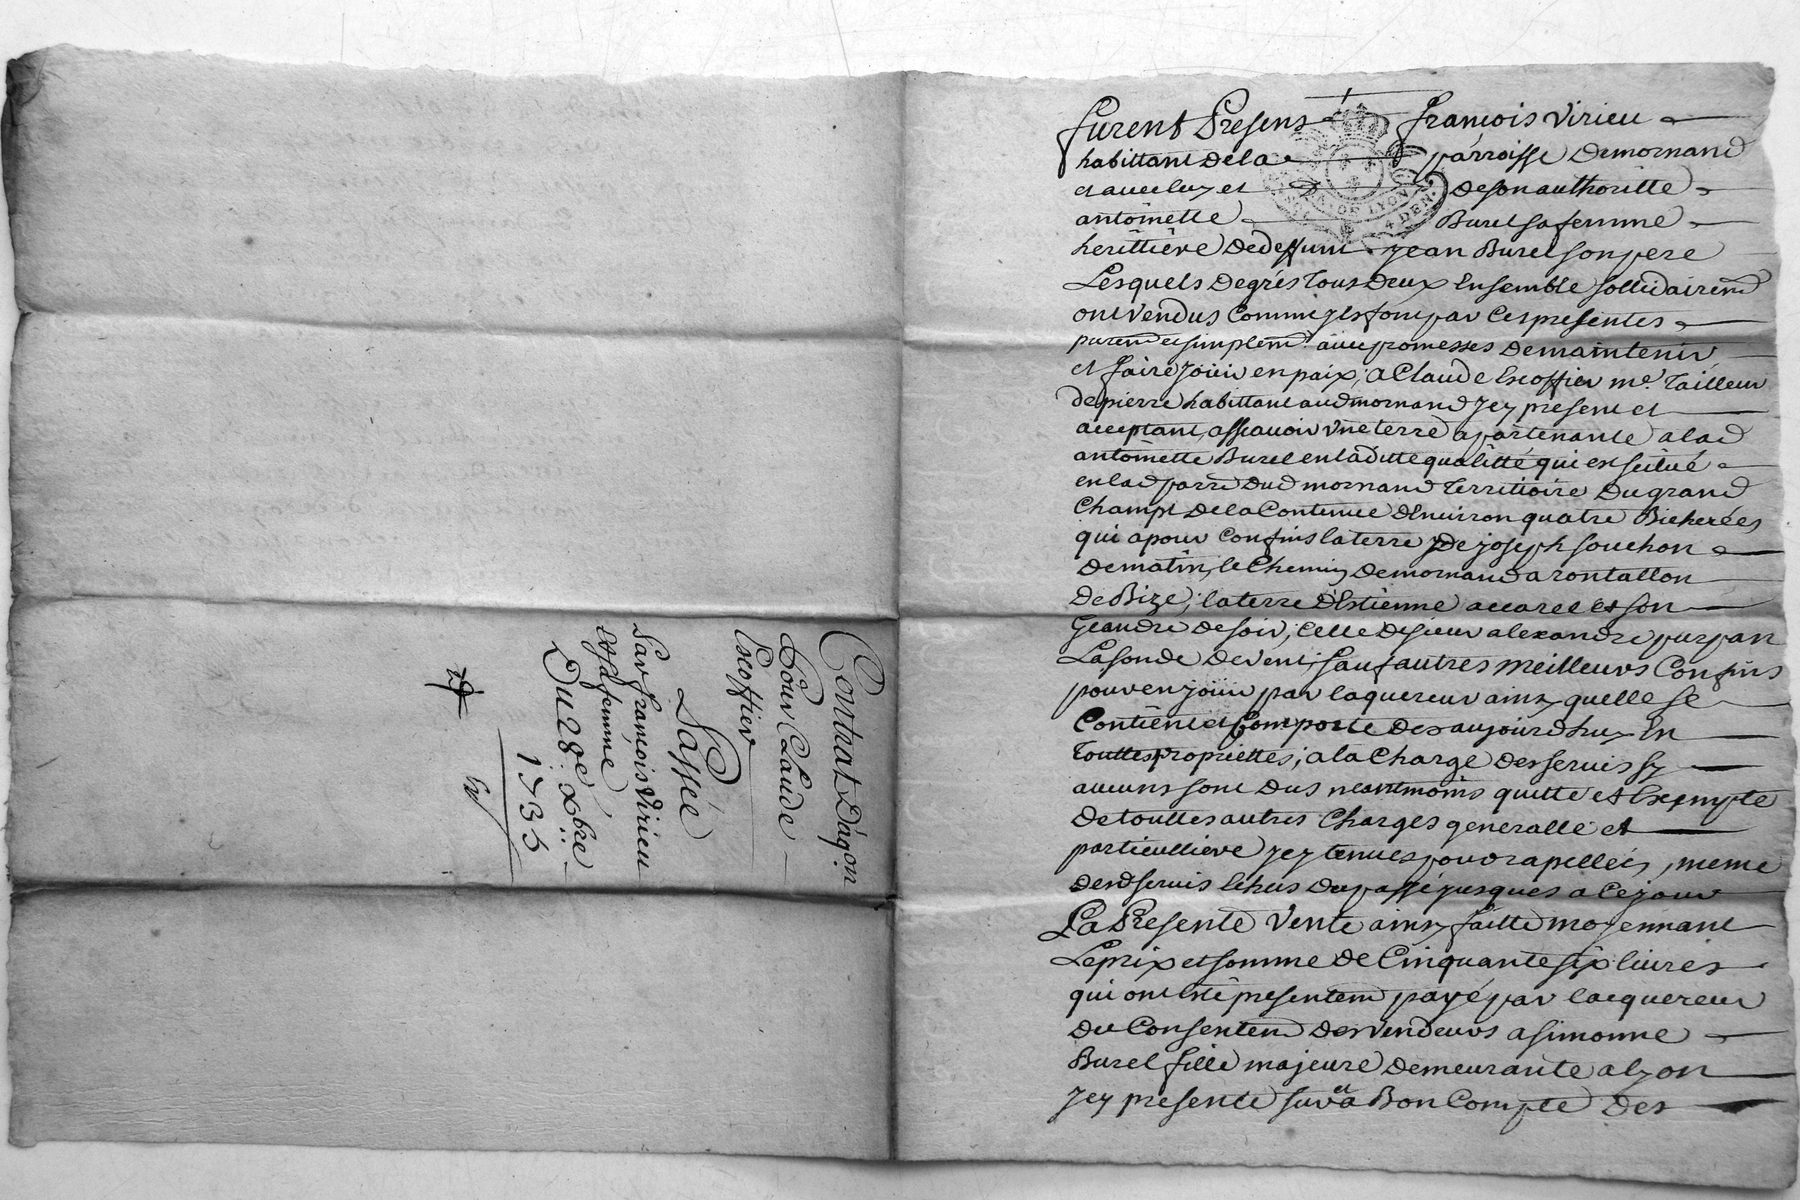 furent Presens françois Virieu
habittant de la parroisse de mornand
et avec luy et de son authoritté
antoinette Burel sa femme
herittiere de deffunt jean Burel son pere
Lesquels de grés tous deux Ensemble sollidairemt
ont vendus comme ils font par ces presentes
puremt et simplemt avec promesses de maintenir
et faire jouir en paix, a Claude Escoffier me. Tailleur
de pierre habittant aud mornand Jcy present et
acceptant, assavoir Une terre apartenante a lad
antoinette Burel en laditte qualitté qui est scitué
en lad parre dud mornand Territtoire du grand
Champt de la Contenue d'Environ quatre Bicherées
qui a pour confins la terre de joseph souchon
de matin, le Chemin de mornand a rontallon
de Bize, la terre d'Estienne accarel et son
Geandre de soir, celle de sieur alexandre purpan
Lasonde de vent, sauf autres meilleurs Confins
pour en jouir par laquereur ainsy quelle se
Contient et Comporte des aujourdhuy En
touttes propriettés, a la Charge des servis sy
aucuns sont dus neantmoins quitte et Exempte
de touttes autres Charges generalle et
particulliere Jcy tenues pour rapellées, meme
desd servis Echus du passé jusques a ce jour
La Presente Vente ainsy faitte moyennant
Le prix et somme de Cinquante six livres
qui ont Esté presentemt payé par lacquereur
du Consentemt des vendeurs a simonne
Burel fille majeure demeurante a lyon
Jcy presente sur et a Bon Compte des
DE LYON
4 DEN.
Contrat D'aqon
Pour Claude
Escoffier
Passée
Par françois Virieu
et sa femme
Du 28e. xbre
1735